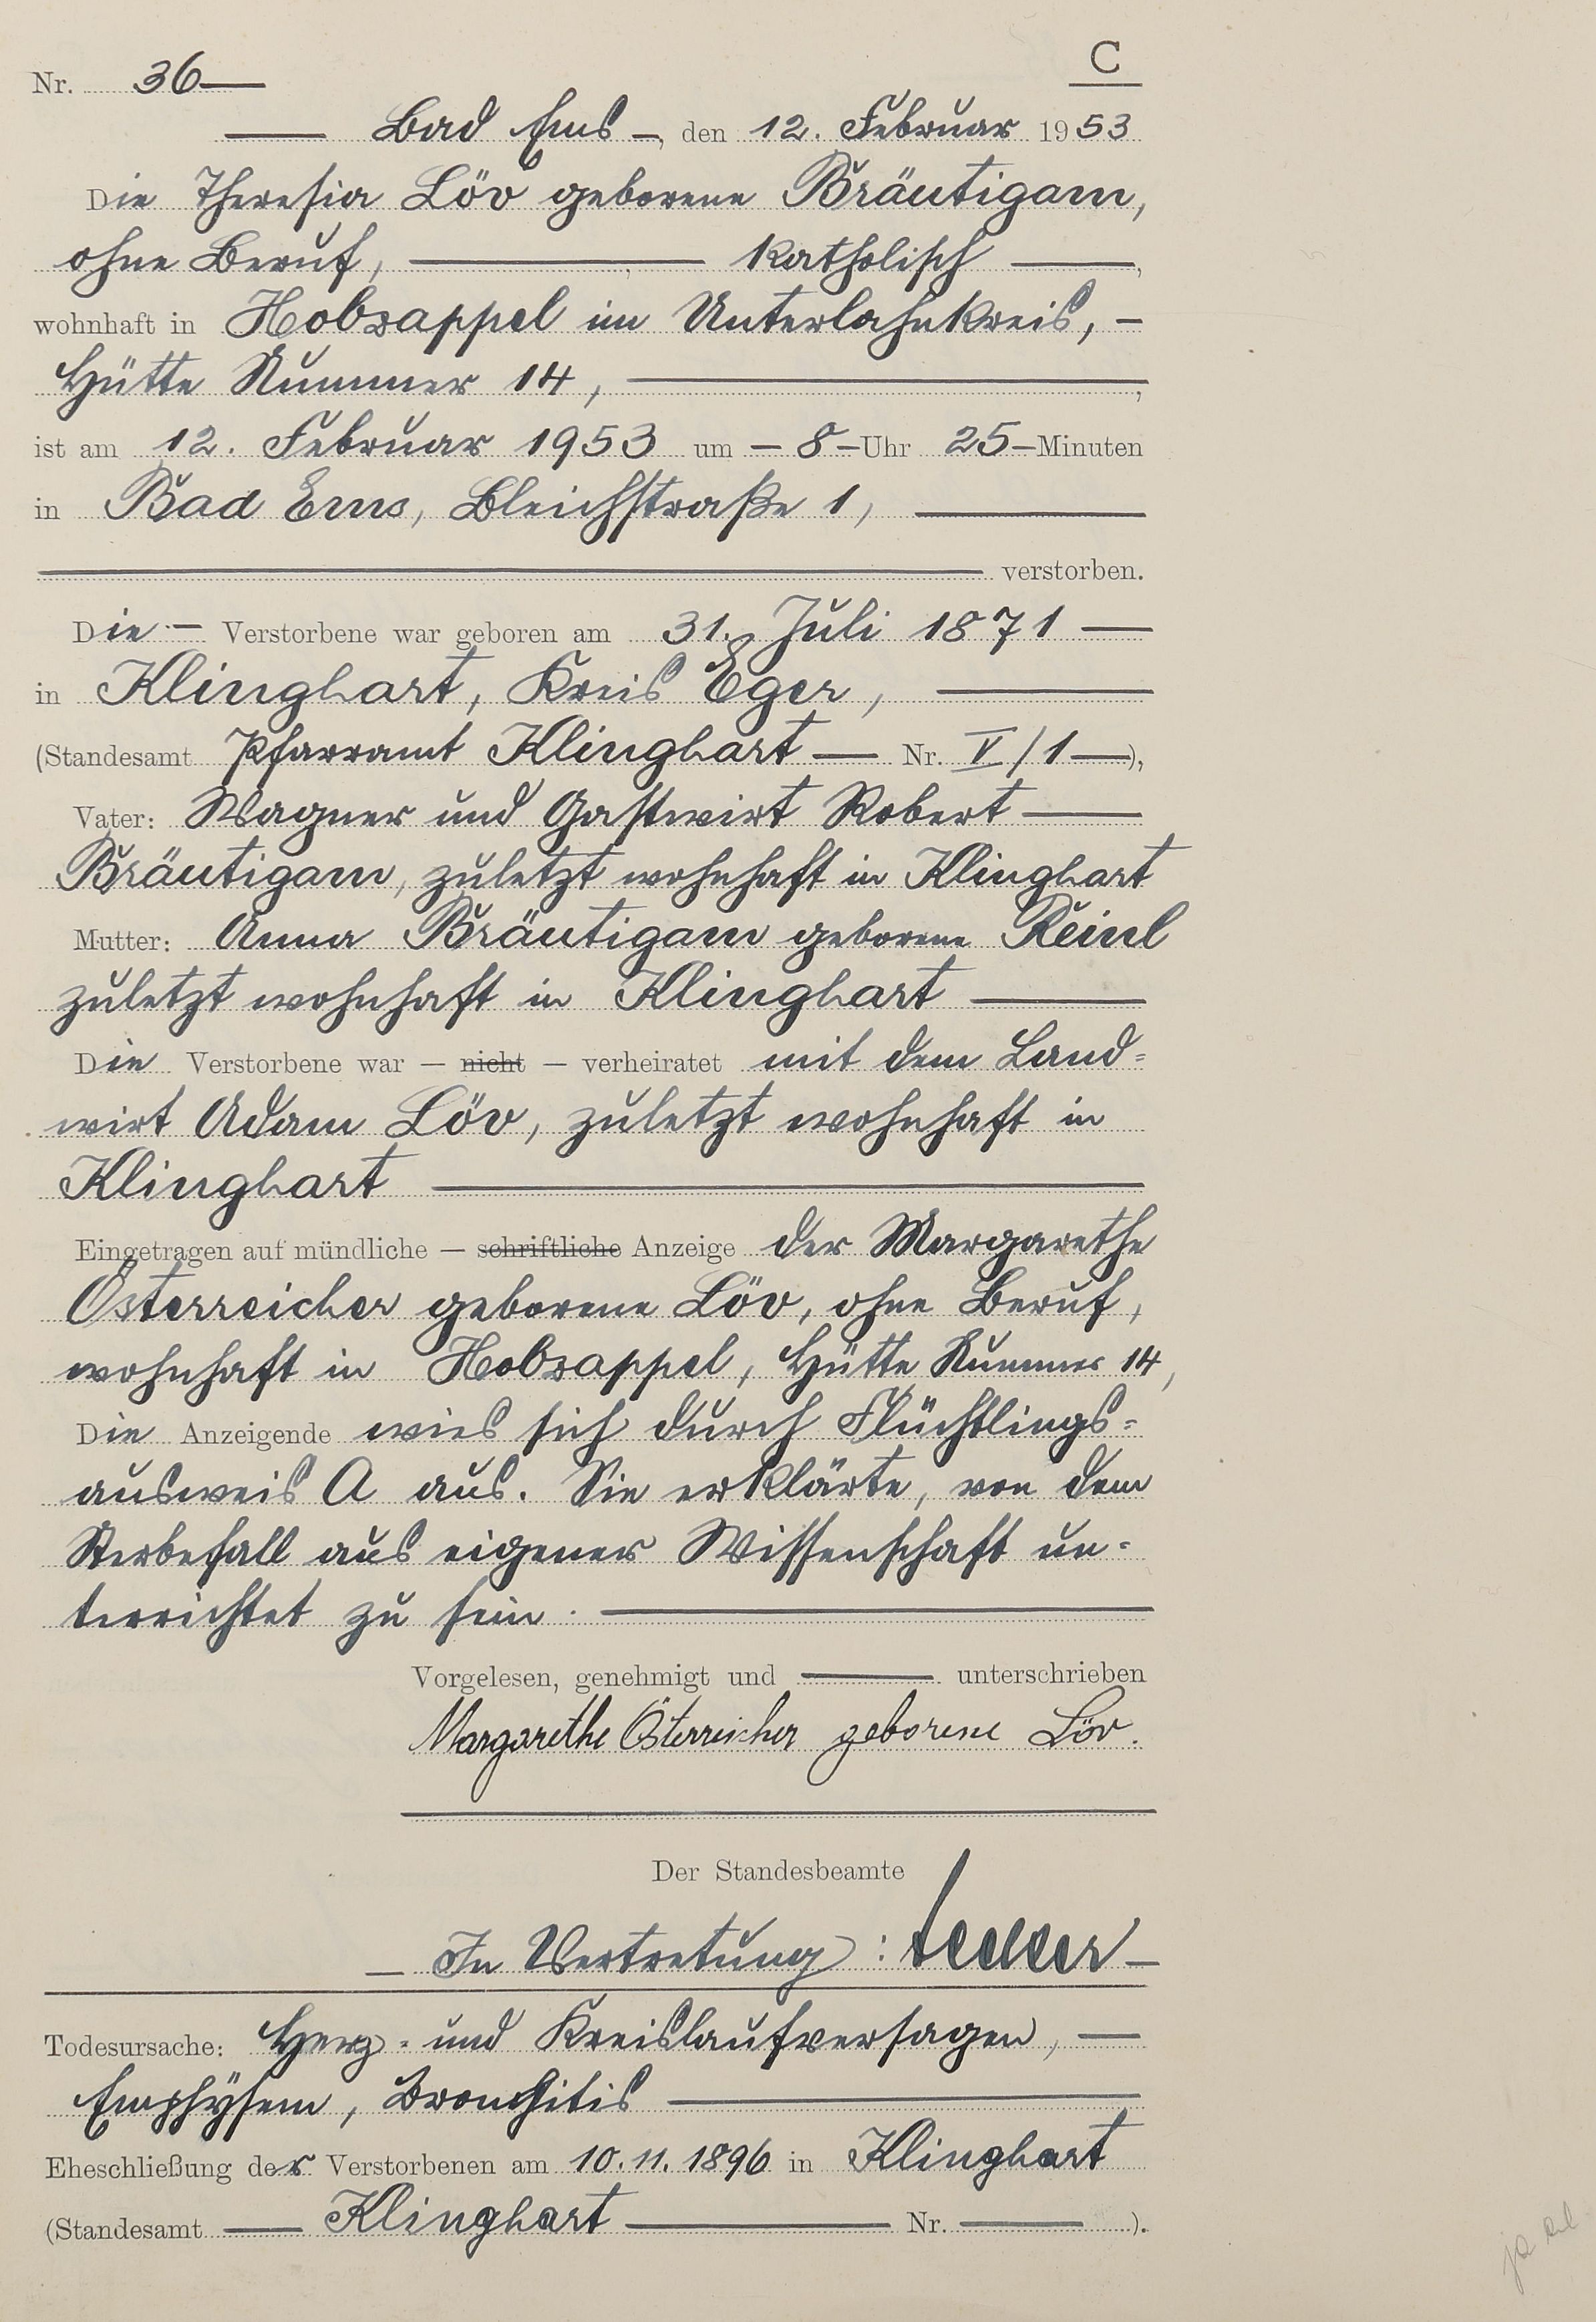 C
Nr. 36 —
— Bad Ems —, den 12. Februar 1953
Die Theresia Löv geborene Bräutigam,
ohne Beruf, — , — katholisch —,
wohnhaft in Holzappel im Unterlahnkreis, —
Hütte Nummer 14, —,
ist am 12. Februar 1953 um — 8 — Uhr 25 — Minuten
in Bad Ems, Bleichstraße 1, —
— verstorben.
Die — Verstorbene war geboren am 31. Juli 1871 —
in Klinghart, Kreis Eger, —
(Standesamt Pfarramt Klinghart — Nr. V/1 —),
Vater: Wagner und Gastwirt Robert —
Bräutigam, zuletzt wohnhaft in Klinghart
Mutter: Anna Bräutigam geborene Reinl
zuletzt wohnhaft in Klinghart —
Die Verstorbene war — nicht — verheiratet mit dem Land=
wirt Adam Löv, zuletzt wohnhaft in
Klinghart —
Eingetragen auf mündliche — schriftliche Anzeige der Margarethe
Österreicher geborene Löv, ohne Beruf,
wohnhaft in Holzappel, Hütte Nummer 14,
Die Anzeigende wies sich durch Flüchtlings=
ausweis A aus. Sie erklärte, von dem
Sterbefall aus eigener Wissenschaft un=
terrichtet zu sein. —
Vorgelesen, genehmigt und — unterschrieben
Margarethe Österreicher geborene Löv.
Der Standesbeamte
— In Vertretung: —
Todesursache: Herz= und Kreislaufversagen, —
Emphysem, Bronchitis —
Eheschließung der Verstorbenen am 10.11.1896 in Klinghart
(Standesamt — Klinghart — Nr. — ).